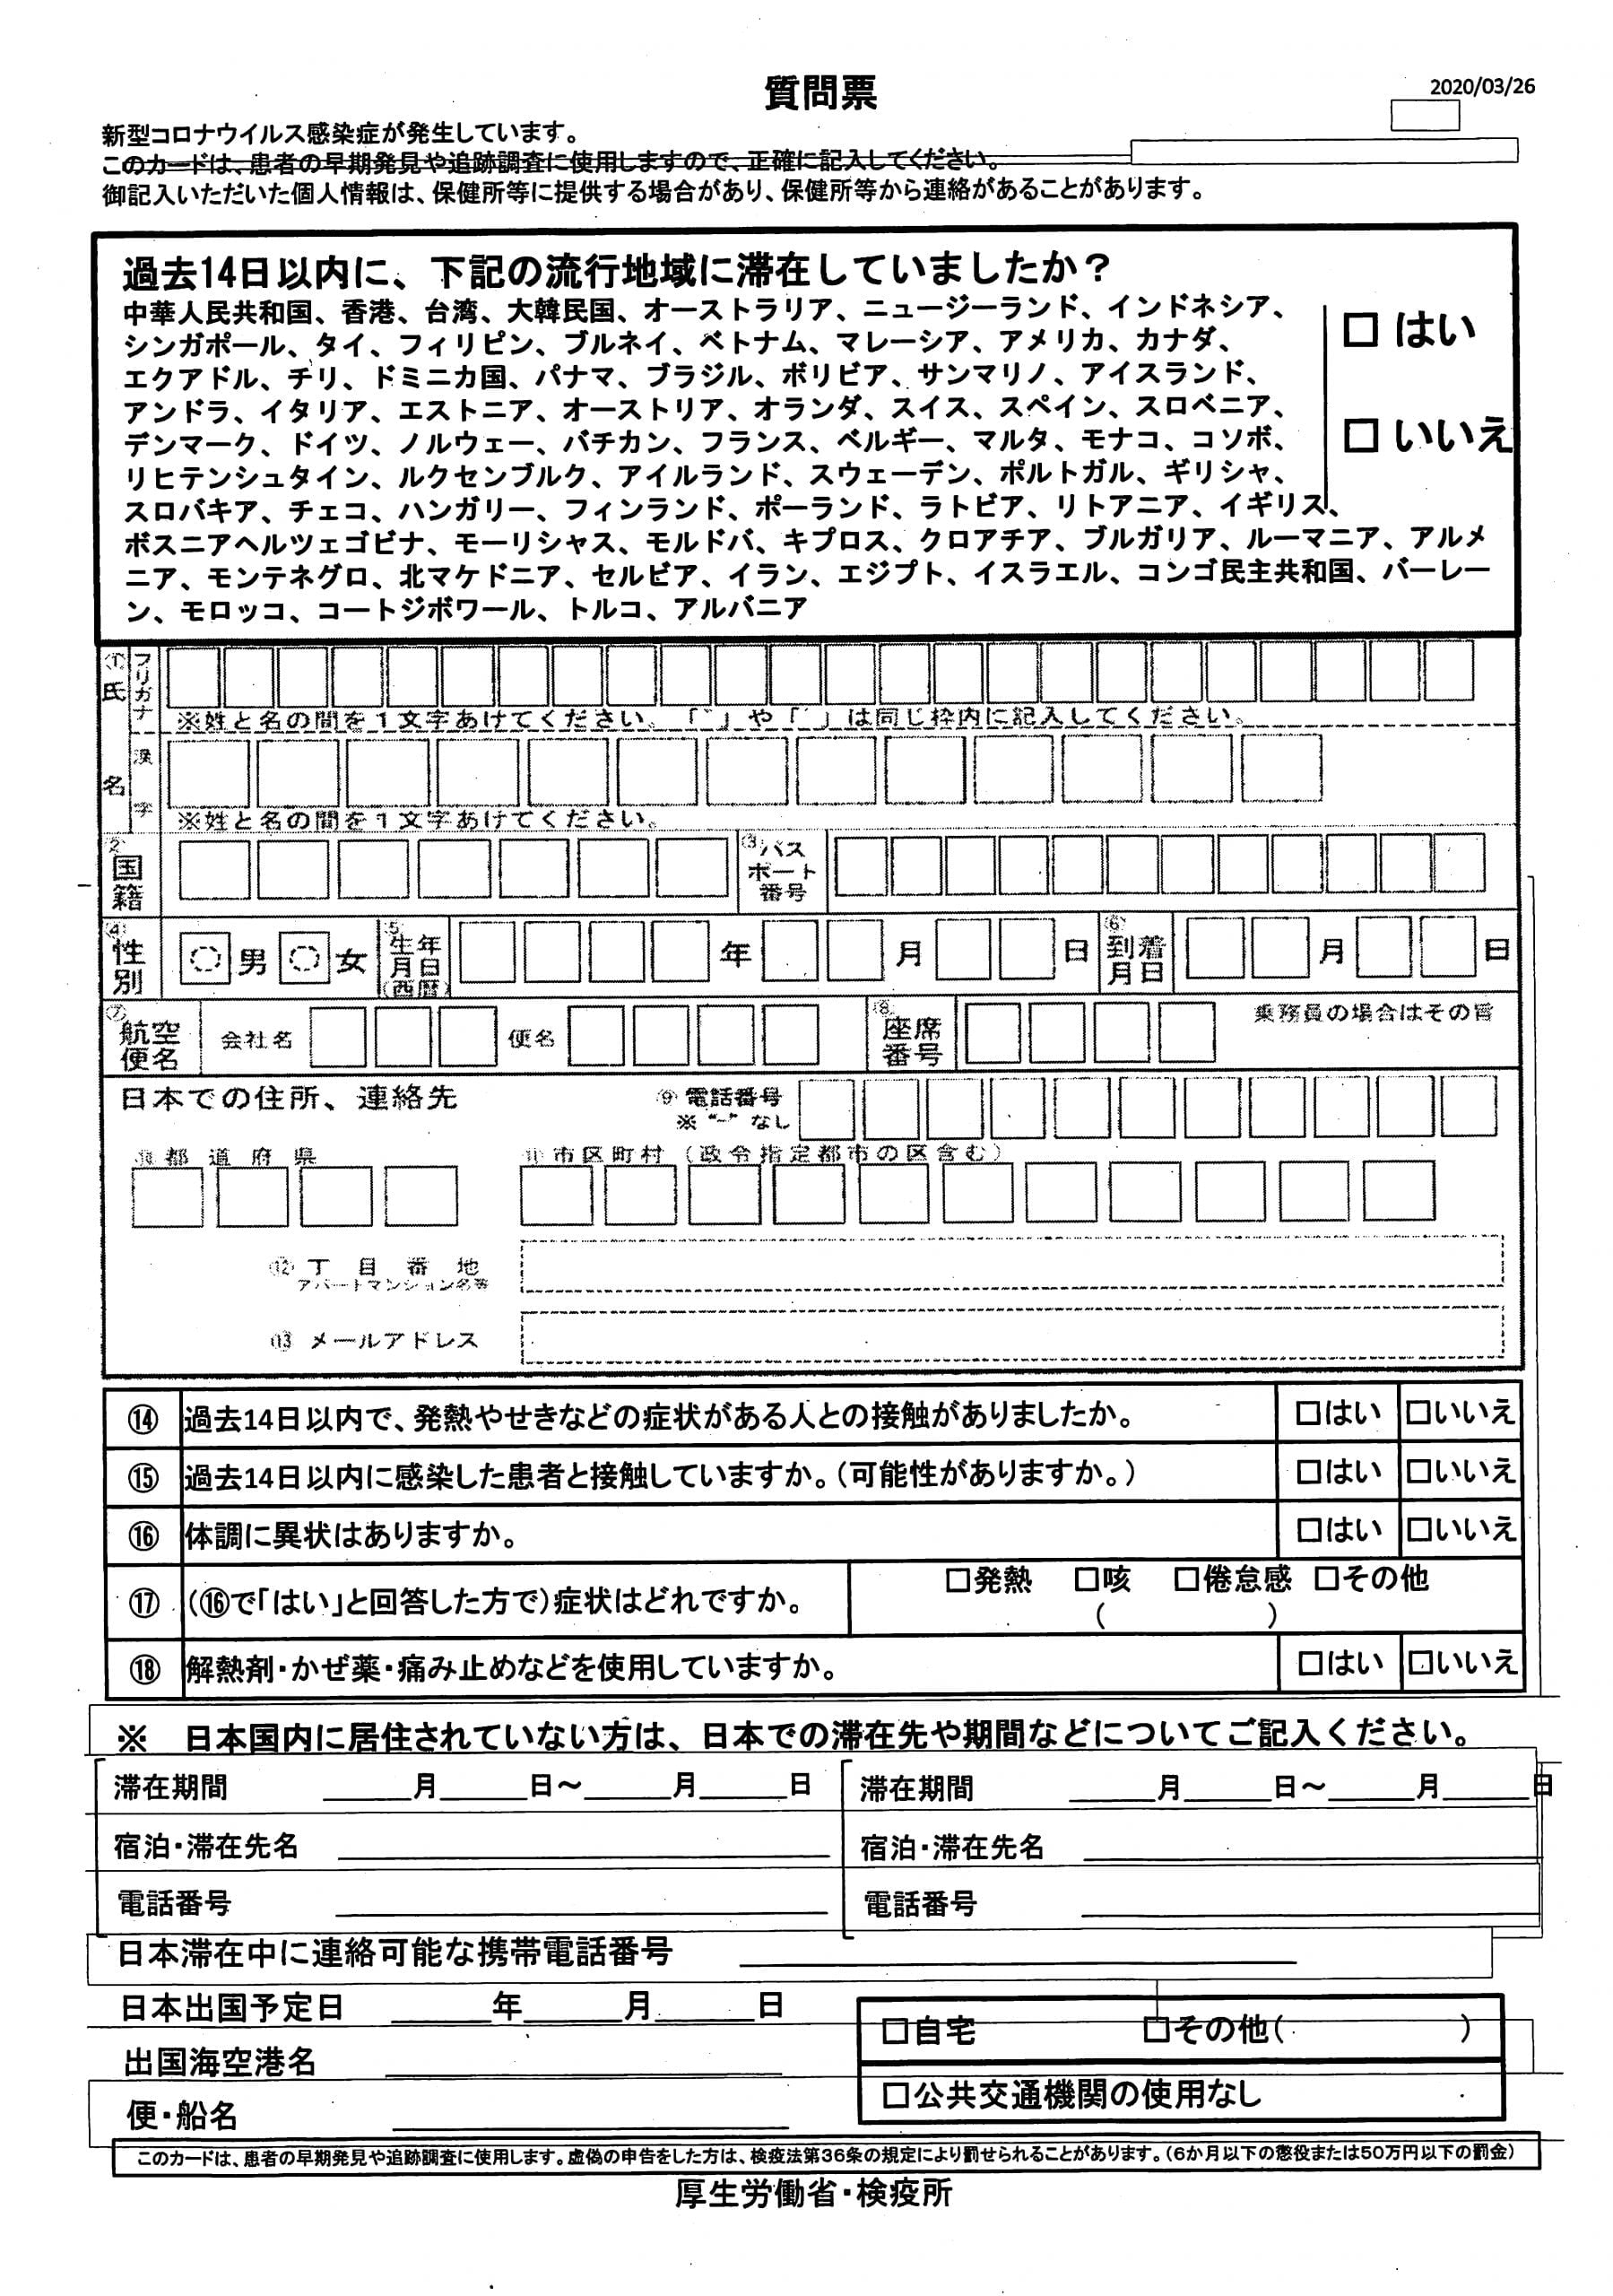 質問票
2020/03/26
新型コロナウイルス感染症が発生しています。
このカードは、患者の早期発見や追跡調査に使用しますので、正確に記入してください。
御記入いただいた個人情報は、保健所等に提供する場合があり、保健所等から連絡があることがあります。
過去14日以内に、下記の流行地域に滞在していましたか？
中華人民共和国、香港、台湾、大韓民国、オーストラリア、ニュージーランド、インドネシア、
シンガポール、タイ、フィリピン、ブルネイ、ベトナム、マレーシア、アメリカ、カナダ、
エクアドル、チリ、ドミニカ国、パナマ、ブラジル、ボリビア、サンマリノ、アイスランド、
アンドラ、イタリア、エストニア、オーストリア、オランダ、スイス、スペイン、スロベニア、
デンマーク、ドイツ、ノルウェー、バチカン、フランス、ベルギー、マルタ、モナコ、コソボ、
リヒテンシュタイン、ルクセンブルク、アイルランド、スウェーデン、ポルトガル、ギリシャ、
スロバキア、チェコ、ハンガリー、フィンランド、ポーランド、ラトビア、リトアニア、イギリス、
ボスニアヘルツェゴビナ、モーリシャス、モルドバ、キプロス、クロアチア、ブルガリア、ルーマニア、アルメ
ニア、モンテネグロ、北マケドニア、セルビア、イラン、エジプト、イスラエル、コンゴ民主共和国、バーレー
ン、モロッコ、コートジボワール、トルコ、アルバニア
□ はい
□ いいえ
① 氏名
フリガナ
※姓と名の間を１文字あけてください。「゛」や「゜」は同じ枠内に記入してください。
漢字
※姓と名の間を１文字あけてください。
② 国籍
③ パスポート番号
④ 性別 男 女
⑤ 生年月日(西暦) 年 月 日
⑥ 到着月日 月 日
⑦ 航空便名 会社名 便名
⑧ 座席番号
乗務員の場合はその旨
日本での住所、連絡先
⑨ 電話番号
※ “-” なし
⑩ 都道府県
⑪ 市区町村（政令指定都市の区含む）
⑫ 丁目番地
アパートマンション名等
⑬ メールアドレス
⑭ 過去14日以内で、発熱やせきなどの症状がある人との接触がありましたか。 □はい □いいえ
⑮ 過去14日以内に感染した患者と接触していますか。（可能性がありますか。） □はい □いいえ
⑯ 体調に異状はありますか。 □はい □いいえ
⑰ （⑯で「はい」と回答した方で）症状はどれですか。 □発熱 □咳 □倦怠感 □その他
（ ）
⑱ 解熱剤・かぜ薬・痛み止めなどを使用していますか。 □はい □いいえ
※ 日本国内に居住されていない方は、日本での滞在先や期間などについてご記入ください。
滞在期間 ＿＿月＿＿日～＿＿月＿＿日
宿泊・滞在先名
電話番号
滞在期間 ＿＿月＿＿日～＿＿月＿＿日
宿泊・滞在先名
電話番号
日本滞在中に連絡可能な携帯電話番号
日本出国予定日 ＿＿年＿＿月＿＿日
出国海空港名
便・船名
□自宅 □その他（ ）
□公共交通機関の使用なし
このカードは、患者の早期発見や追跡調査に使用します。虚偽の申告をした方は、検疫法第36条の規定により罰せられることがあります。（6か月以下の懲役または50万円以下の罰金）
厚生労働省・検疫所